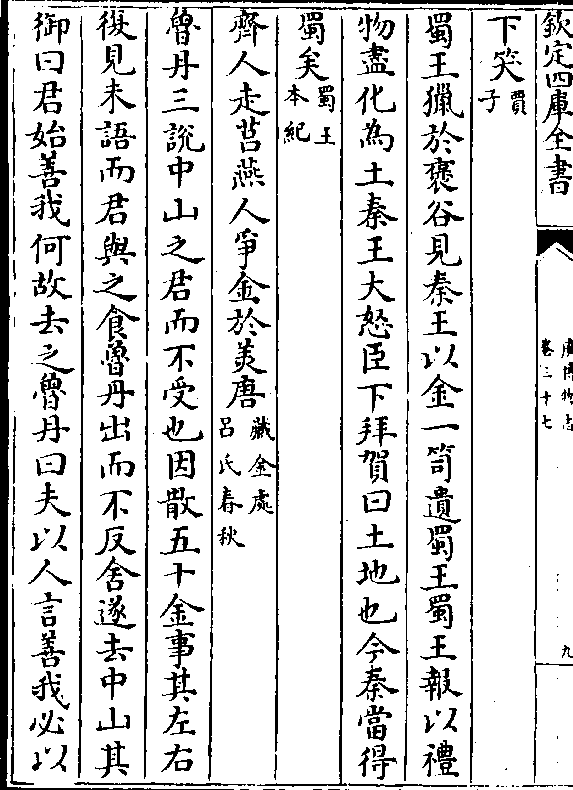 欽定四庫全書
廣博物志
卷三十七
九
下笑賈子
蜀王獵於褒谷見秦王以金一笥遺蜀王蜀王報以禮
物盡化為土秦王大怒臣下拜賀曰土地也今秦當得
蜀矣蜀王本紀
齊人走莒燕人爭金於美唐藏金處呂氏春秋
魯丹三說中山之君而不受也因散五十金事其左右
復見未語而君與之食魯丹出而不反舍遂去中山其
御曰君始善我何故去之魯丹曰夫以人言善我必以